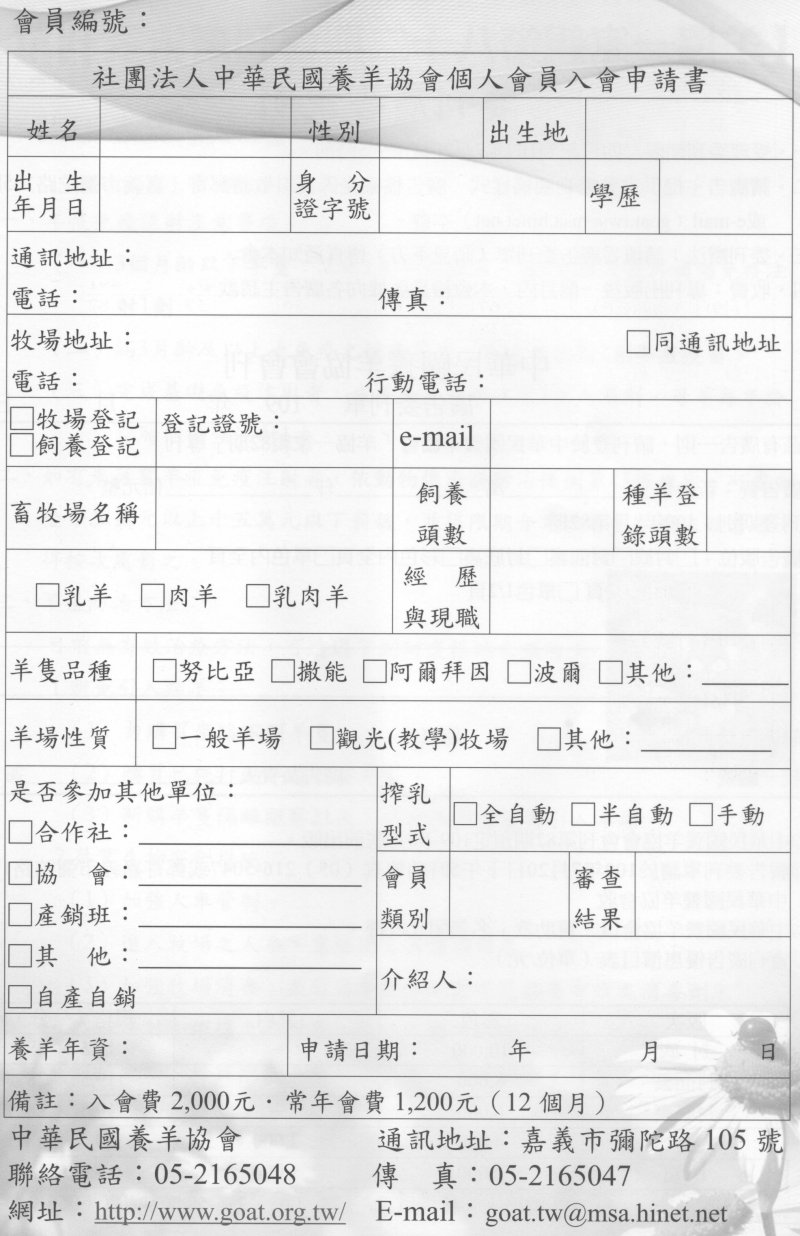 會員編號：
社團法人中華民國養羊協會個人會員入會申請書
姓名 性別 出生地
出生年月日 身分證字號 學歷
通訊地址：
電話： 傳真：
牧場地址： □同通訊地址
電話： 行動電話：
□牧場登記 登記證號： e-mail
□飼養登記
畜牧場名稱 飼養頭數 種羊登錄頭數
□乳羊 □肉羊 □乳肉羊 經歷與現職
羊隻品種 □努比亞 □撒能 □阿爾拜因 □波爾 □其他：
羊場性質 □一般羊場 □觀光(教學)牧場 □其他：
是否參加其他單位： 搾乳型式 □全自動 □半自動 □手動
□合作社：
□協會： 會員類別 審查結果
□產銷班：
□其他： 介紹人：
□自產自銷
養羊年資： 申請日期： 年 月 日
備註：入會費 2,000元．常年會費 1,200元（12 個月）
中華民國養羊協會 通訊地址：嘉義市彌陀路 105 號
聯絡電話：05-2165048 傳真：05-2165047
網址：http://www.goat.org.tw/ E-mail：goat.tw@msa.hinet.net